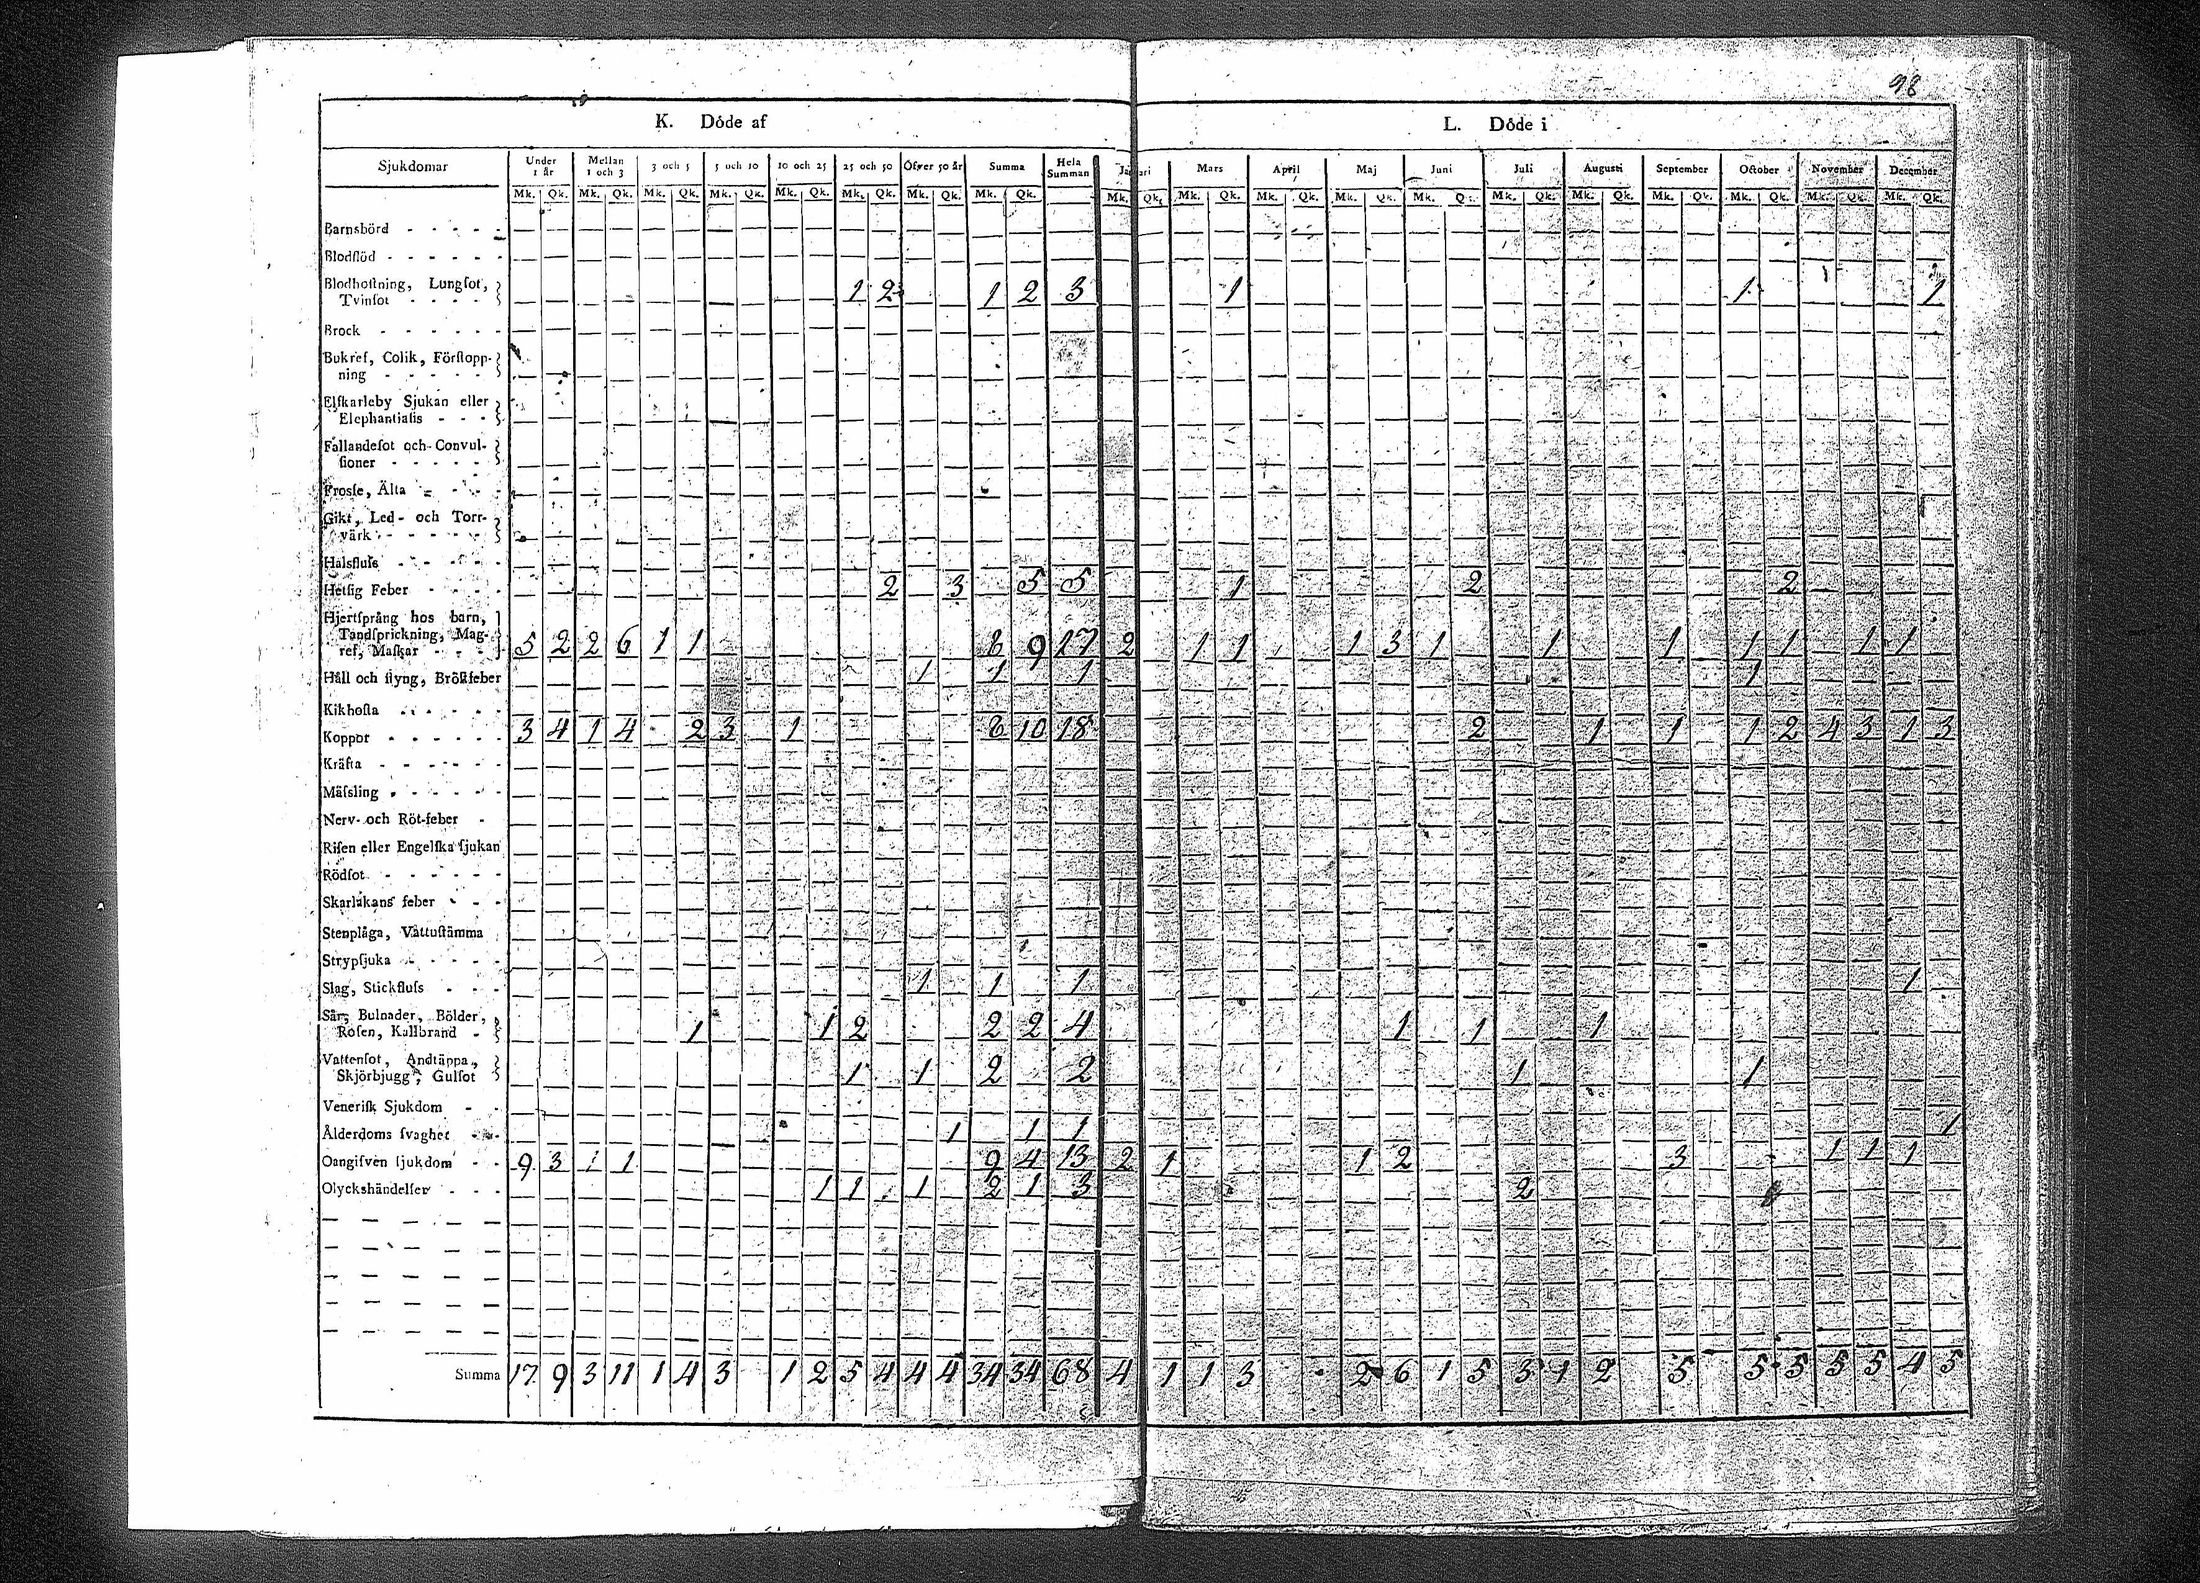 98
K. Döde af
L. Döde i
Sjukdomar Under 1 år Mellan 1 och 3 3 och 5 5 och 10 10 och 25 25 och 50 Öfver 50 år Summa Hela Summan Mars April Maj Juni Juli Augusti September October November December
Mk. Qk. Mk. Qk. Mk. Qk. Mk. Qk. Mk. Qk. Mk. Qk. Mk. Qk. Mk. Qk. Mk. Qk. Mk. Qk. Mk. Qk. Mk. Qk. Mk. Qk. Mk. Qk. Mk. Qk. Mk. Qk. Mk. Qk. Mk. Qk. Mk. Qk.
Barnsbörd
Blodflöd
Blodhostning, Lungsot,
Tvinsot 1 2 1 2 3 1 1 1
Brock
Bukref, Colik, Förstopp-
ning
Elfkarleby Sjukan eller
Elephantiasis
Fallandesot och Convul-
sioner
Frosse, Älta
Gikt, Led- och Torr-
värk
Halsfluss
Hetsig Feber 2 3 5 5 1 2 2
Hjertsprång hos barn,
Tandsprickning, Mag-
ref, Maskar 5 2 2 6 1 1 8 9 17 2 1 1 1 3 1 1 1 1 1 1 1
Håll och styng, Bröstfeber 1 1 1 1
Kikhosta
Koppor 3 4 1 4 2 3 1 8 10 18 2 1 1 1 2 4 3 1 3
Kräfta
Mässling
Nerv- och Röt-feber
Risen eller Engelska sjukan
Rödsot
Skarlakans feber
Stenplåga, Vattustämma
Strypsjuka
Slag, Stickfluss 1 1 1 1
Sår, Bulnader, Bölder,
Rosen, Kallbrand 1 1 2 2 2 4 1 1 1
Vattensot, Andtäppa,
Skjörbjugg, Gulsot 1 1 2 2 1 1
Venerisk Sjukdom
Ålderdoms svaghet 1 1 1 1
Oangifven sjukdom 9 3 1 1 9 4 13 2 1 1 2 3 1 1 1
Olyckshändelser 1 1 1 2 1 3 2
Summa 17 9 3 11 1 4 3 1 2 5 4 4 4 34 34 68 4 1 1 3 2 6 1 5 3 1 2 5 5 5 5 5 4 5